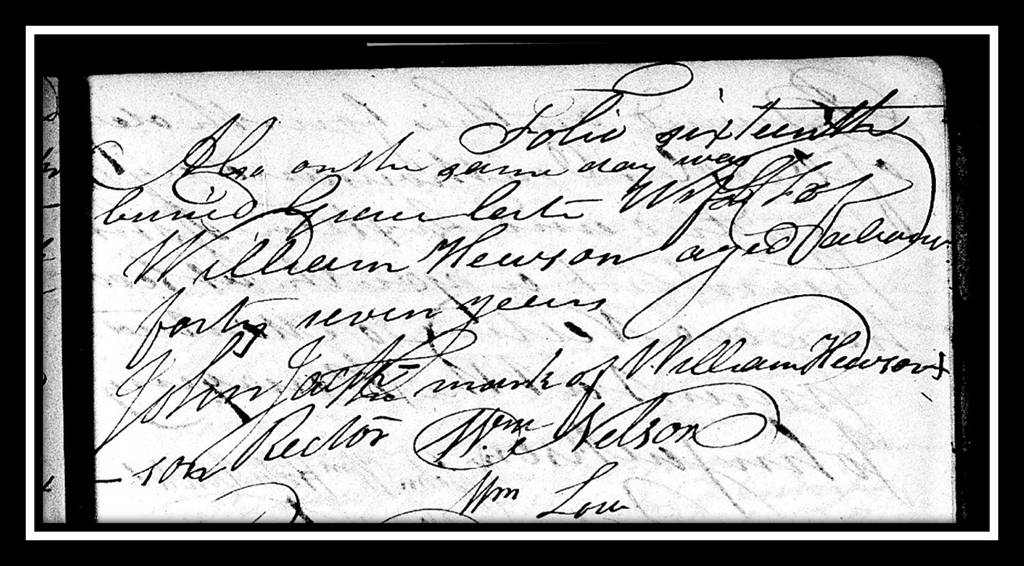 Folio sixteenth
Also on the same day was
buried Grace late Wife to
William Hewson aged about
forty seven years
John Jack mark of William Hewson
-son Rector Wm Nelson
Wm Low